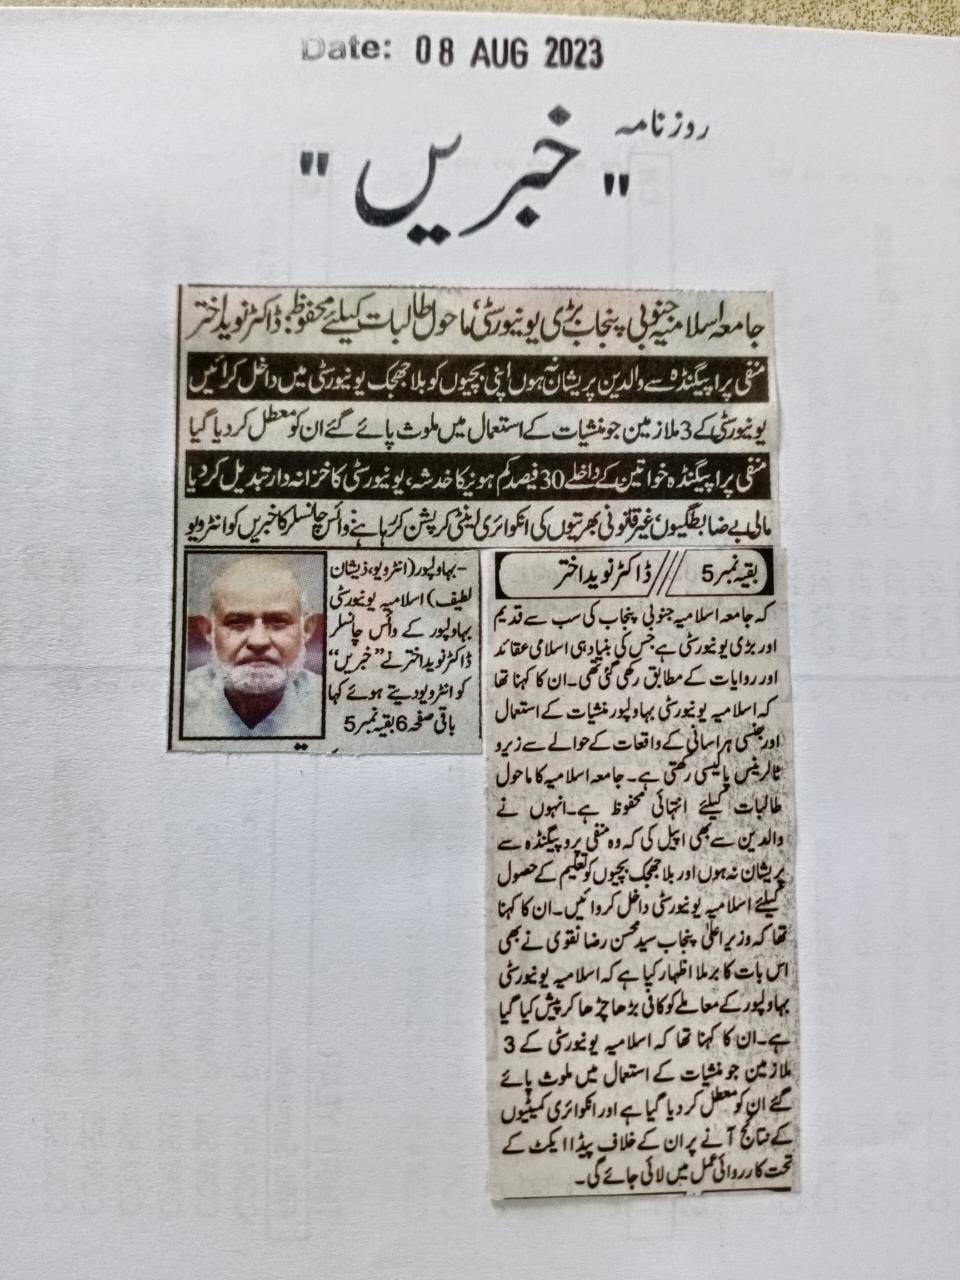 Date: 08 AUG 2023
روزنامہ
"خبریں"
جامعہ اسلامیہ جنوبی پنجاب بڑی یونیورسٹی، ماحول طالبات کیلئے محفوظ: ڈاکٹر نوید اختر
منفی پراپیگنڈہ سے والدین پریشان نہ ہوں اپنی بچیوں کو بلا جھجک یونیورسٹی میں داخل کرائیں
یونیورسٹی کے 3 ملازمین جو منشیات کے استعمال میں ملوث پائے گئے ان کو معطل کر دیا گیا
منفی پراپیگنڈہ خواتین کے داخلے 30 فیصد کم ہونیکا خدشہ، یونیورسٹی کا خزانہ دار تبدیل کر دیا
مالی بے ضابطگیوں، غیر قانونی بھرتیوں کی انکوائری اینٹی کرپشن کر رہا ہے، وائس چانسلر کا خبریں کو انٹرویو
بہاولپور (انٹرویو، ذیشان
لطیف) اسلامیہ یونیورسٹی
بہاولپور کے وائس چانسلر
ڈاکٹر نوید اختر نے "خبریں"
کو انٹرویو دیتے ہوئے کہا
باقی صفحہ 6 بقیہ نمبر 5
بقیہ نمبر 5 /// ڈاکٹر نوید اختر
کہ جامعہ اسلامیہ جنوبی پنجاب کی سب سے قدیم
اور بڑی یونیورسٹی ہے جس کی بنیاد ہی اسلامی عقائد
اور روایات کے مطابق رکھی گئی تھی۔ ان کا کہنا تھا
کہ اسلامیہ یونیورسٹی بہاولپور منشیات کے استعمال
اور جنسی ہراسانی کے واقعات کے حوالے سے زیرو
ٹالرینس پالیسی رکھتی ہے۔ جامعہ اسلامیہ کا ماحول
طالبات کیلئے انتہائی محفوظ ہے۔ انہوں نے
والدین سے بھی اپیل کی کہ وہ منفی پروپیگنڈہ سے
پریشان نہ ہوں اور بلا جھجک بچیوں کو تعلیم کے حصول
کیلئے اسلامیہ یونیورسٹی داخل کروائیں۔ ان کا کہنا
تھا کہ وزیراعلیٰ پنجاب سید محسن رضا نقوی نے بھی
اس بات کا برملا اظہار کیا ہے کہ اسلامیہ یونیورسٹی
بہاولپور کے معاملے کو کافی بڑھا چڑھا کر پیش کیا گیا
ہے۔ ان کا کہنا تھا کہ اسلامیہ یونیورسٹی کے 3
ملازمین جو منشیات کے استعمال میں ملوث پائے
گئے ان کو معطل کر دیا گیا ہے اور انکوائری کمیٹیوں
کے نتائج آنے پر ان کے خلاف پیڈا ایکٹ کے
تحت کارروائی عمل میں لائی جائے گی۔